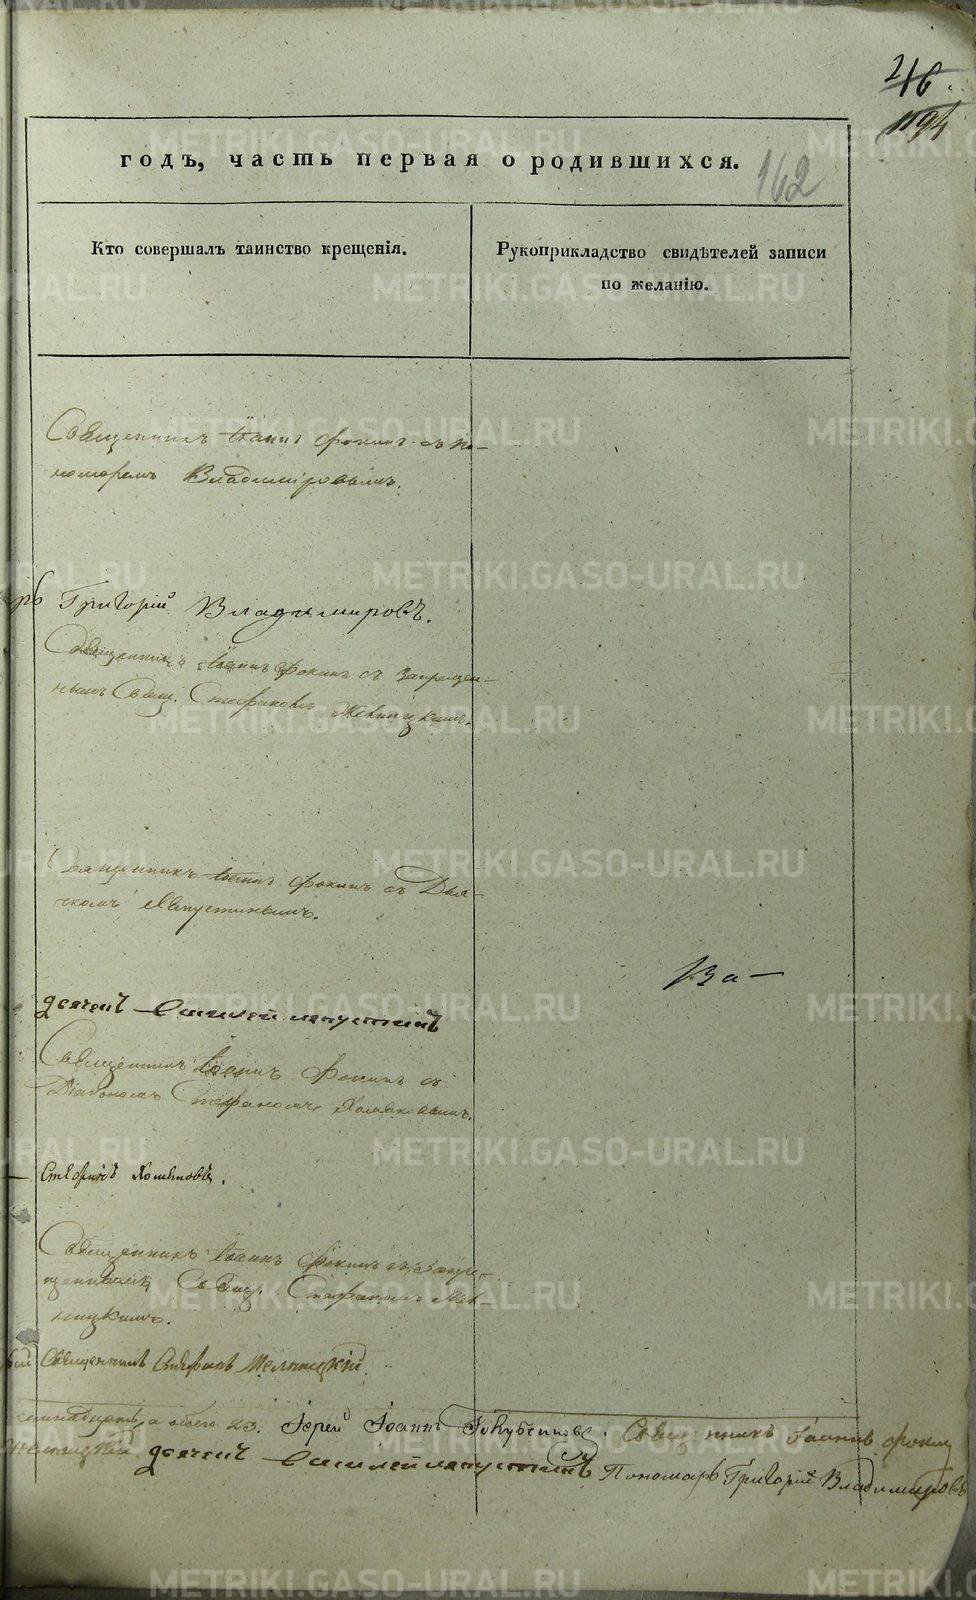 46.
1194
годъ, часть первая о родившихся.
162
Кто совершалъ таинство крещенія.
Рукоприкладство свидѣтелей записи
по желанію.
Священникъ Іоаннъ Фокинъ съ по-
номаремъ Владиміровымъ.
Григорій Владимировъ.
Священникъ Іоаннъ Фокинъ съ запрещен-
нымъ Свящ. Стефаномъ
Священникъ Іоаннъ Фокинъ съ Дья-
Лапустинымъ.
За—
дьячекъ Василей лапустинъ
Священникъ Іоаннъ Фокинъ съ
Діакономъ Стефаномъ
Стефанъ
Священникъ Іоаннъ Фокинъ съ запре-
щеннымъ Свящ. Стефаномъ Мел-
ницкимъ.
Священникъ Стефанъ Мелницкій.
а обоего 23. Іерей Іоаннъ Священникъ Іоаннъ Фокин
дьячекъ Василей лапустинъ Пономарь Григорій Владимировъ
METRIKI.GASO-URAL.RU